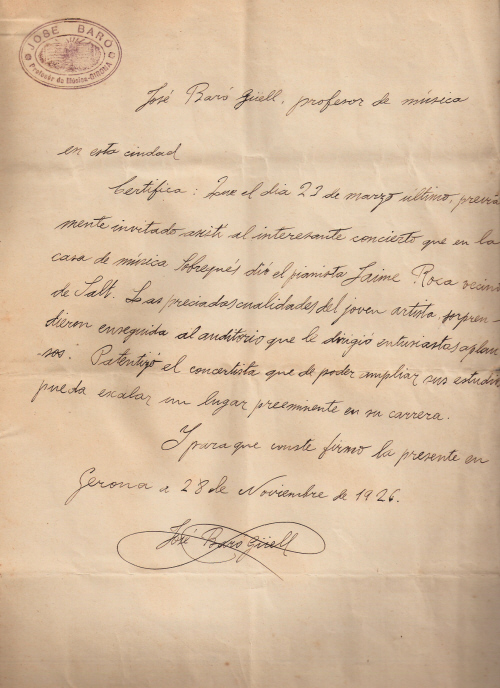 JOSÉ BARÓ
Profesor de Música-GERONA
José Baró Güell, profesor de música
en esta ciudad
Certifica: Que el dia 23 de marzo último, previa
mente invitado asistí al interesante concierto que en la
casa de música Sobrequés dió el pianista Jaime Roca vecino
de Salt. Las preciadas cualidades del joven artista, sorpren-
dieron enseguida al auditorio que le dirigió entusiastas aplau
sos. Patentizó el concertista que de poder ampliar sus estudios
pueda escalar un lugar preeminente en su carrera.
Y para que conste firmo la presente en
Gerona a 28 de Noviembre de 1926.
José Baró Güell